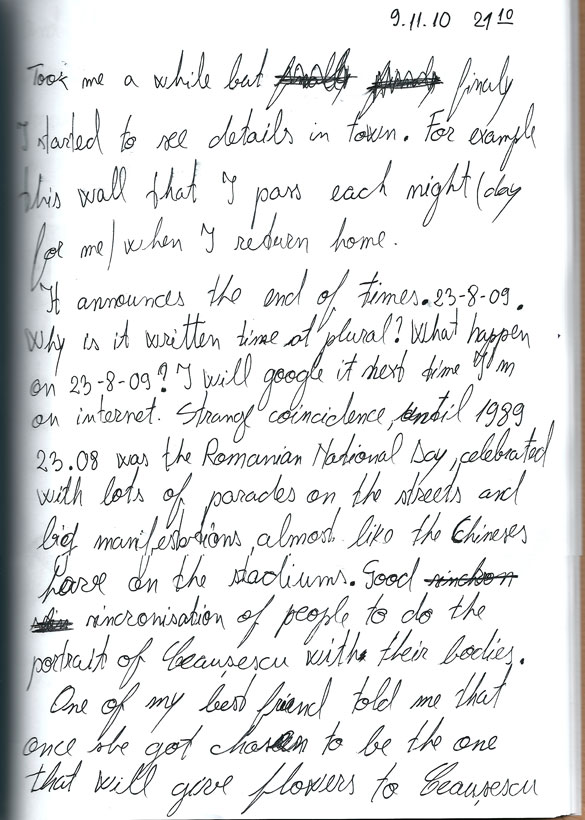 9.11.10 21 10
Took me a while but finaly
I started to see details in town. For example
this wall that I pass each night (day
for me) when I return home.
It announces the end of times. 23-8-09.
Why is it written time at plural? What happen
on 23-8-09? I will google it next time I'm
on internet. Strange coincidence, until 1989
23.08 was the Romanian National Day, celebrated
with lots of parades on the streets and
big manifestations, almost like the Chineses
have on the stadiums. Good
sincronisation of people to do the
portrait of Ceaușescu with their bodies.
One of my best friend told me that
once she got chosen to be the one
that will give flowers to Ceaușescu